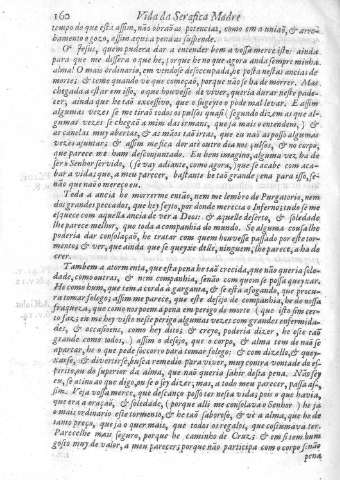 160 Vida da Serafica Madre
tempo do que està assim, não obrão as potencias, como em a união, & arrou-
bamento o gozo, assim aqui a pena as suspende.
O Jesus, quem pudera dar a entender bem a vossa mercè isto: ainda
para que me dissera o que he, porque he no que agora anda sempre minha
alma! O mais ordinario, em vendose desoccupada, he posta nestas ancias de
morte; & teme quando vè que começão, porque não se ha de morrer. Mas
chegada a estar em isso, o que houvesse de viver, queria durar neste pade-
cer, ainda que he tão excessivo, que o sugeyto o pòde mal levar. E assim
algumas vezes se me tirão todos os pulsos quasi (segundo dizem as que al-
gumas vezes se chegão a mim das irmans, que jà mais o entendem,) &
as canelas muy abertas, & as mãos tão irtas, que eu não as posso algumas
vezes ajuntar; & assim me fica dor atè outro dia nos pulsos, & no corpo,
que parece me ham desconjuntado. Eu bem imagino, alguma vez ha de
ser o Senhor servido, (se vay adiante, como agora,) que se acabe com aca-
bar a vida; que, a meu parecer, bastante he tão grande pena para isso, se-
não que não o mereço eu.
Toda a ancia he morrerme então, nem me lembro de Purgatorio, nem
dos grandes peccados, que hey feyto, por donde merecia o Inferno; tudo se me
esquece com aquella ancia de ver a Deus: & aquelle deserto, & soledade
lhe parece melhor, que toda a companhia do mundo. Se alguma cousa lhe
poderia dar consolação, he tratar com quem houvesse passado por este tor-
mento; & ver, que ainda que se queyxe delle, ninguem, lhe parece, a ha de
crer.
Tambem a atormenta, que esta pena he tão crecida, que não queria sole-
dade, como outras, & nem companhia, senão com quem se possa queyxar.
He como hum, que tem a corda à garganta, & se està afogando, que procu-
ra tomar folego; assim me parece, que este desejo de companhia, he de nossa
fraqueza, que como nos poem a pena em perigo de morte (que isto sim cer-
to faz; eu me hey visto neste perigo algumas vezes com grandes enfermida-
des, & occasioens, como hey dito; & creyo, poderia dizer, he este tão
grande como todos,) assim o desejo, que o corpo, & alma tem de não se
apartar, he o que pede socorro para tomar folego: & com dizello, & quey-
xarse, & divertirse, busca remedio para viver, muy contra vontade do es-
pirito, ou do superior da alma, que não queria sahir desta pena. Não sey
eu, se atino ao que digo, ou se o sey dizer; mas, a todo meu parecer, passa as-
sim. Veja vossa mercè, que descanço posso ter nesta vida; pois o que havia,
que era a oração, & soledade, (porque alli me consolava o Senhor) he jà
o mais ordinario este tormento, & he tão saboroso, & vè a alma, que he de
tanto preço, que jà o quer mais, que todos os regalos, que costumava ter.
Parecelhe mais seguro, porque he caminho de Cruz; & em si tem hum
gosto muy de valor, a meu parecer; porque não participa com o corpo senão
pena